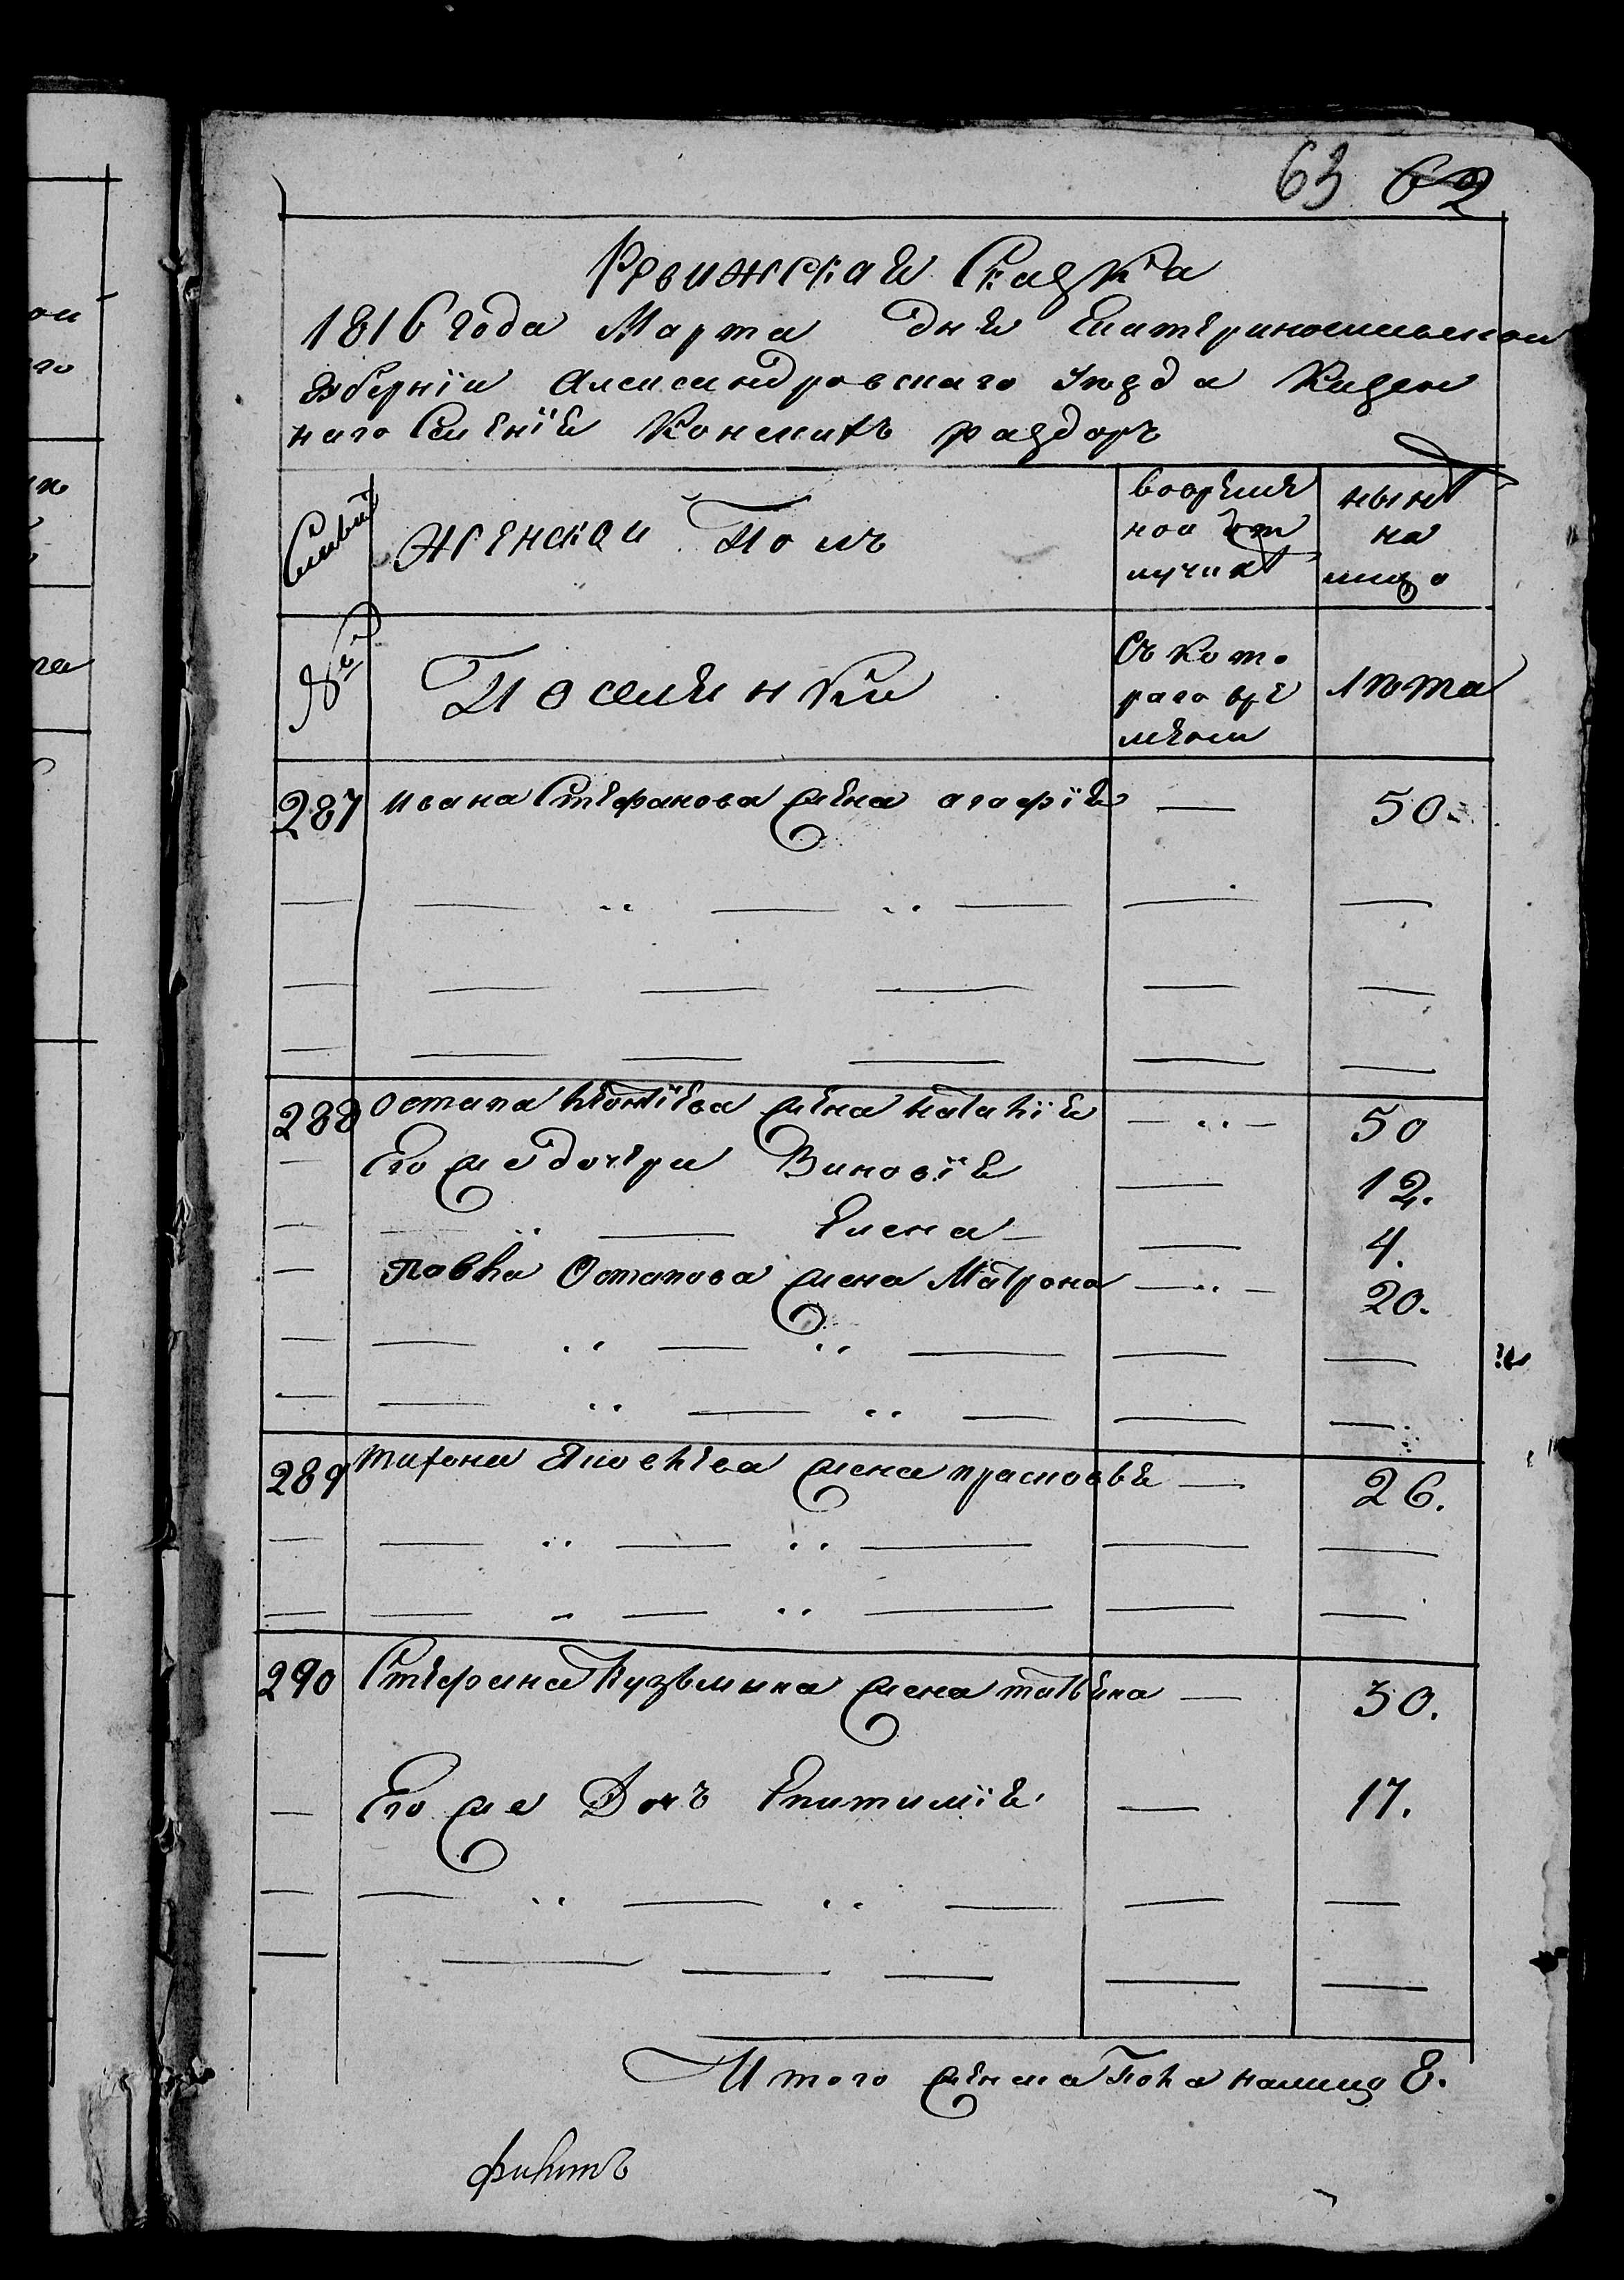 63 62
Ревижская Сказка
1816 года Марта дня Екатеринославской
Губернїи Александровскаго Уѣзда Казен
наго Селенїя Конскихъ раздоръ
Семьи
женской Полъ
вовремен
ной от
лучкѣ
нынѣ
на
лицо
№й
Поселянки
Съ кото
раго вре
мени
лѣта
287 Ивана Стефанова жена агафїя — 50.
288 Остапа Леонтїева жена наталїя — 50
Его же дочери Зиновїя — 12.
Елена — 4.
Павла Остапова жена Матрона — 20.
289 тихона Яковлева жена прасковья — 26.
290 Стефана Кузьмина жена татьяна — 50.
Его же Дочь Епитимїя — 17.
Итого женска Пола налицо 8.